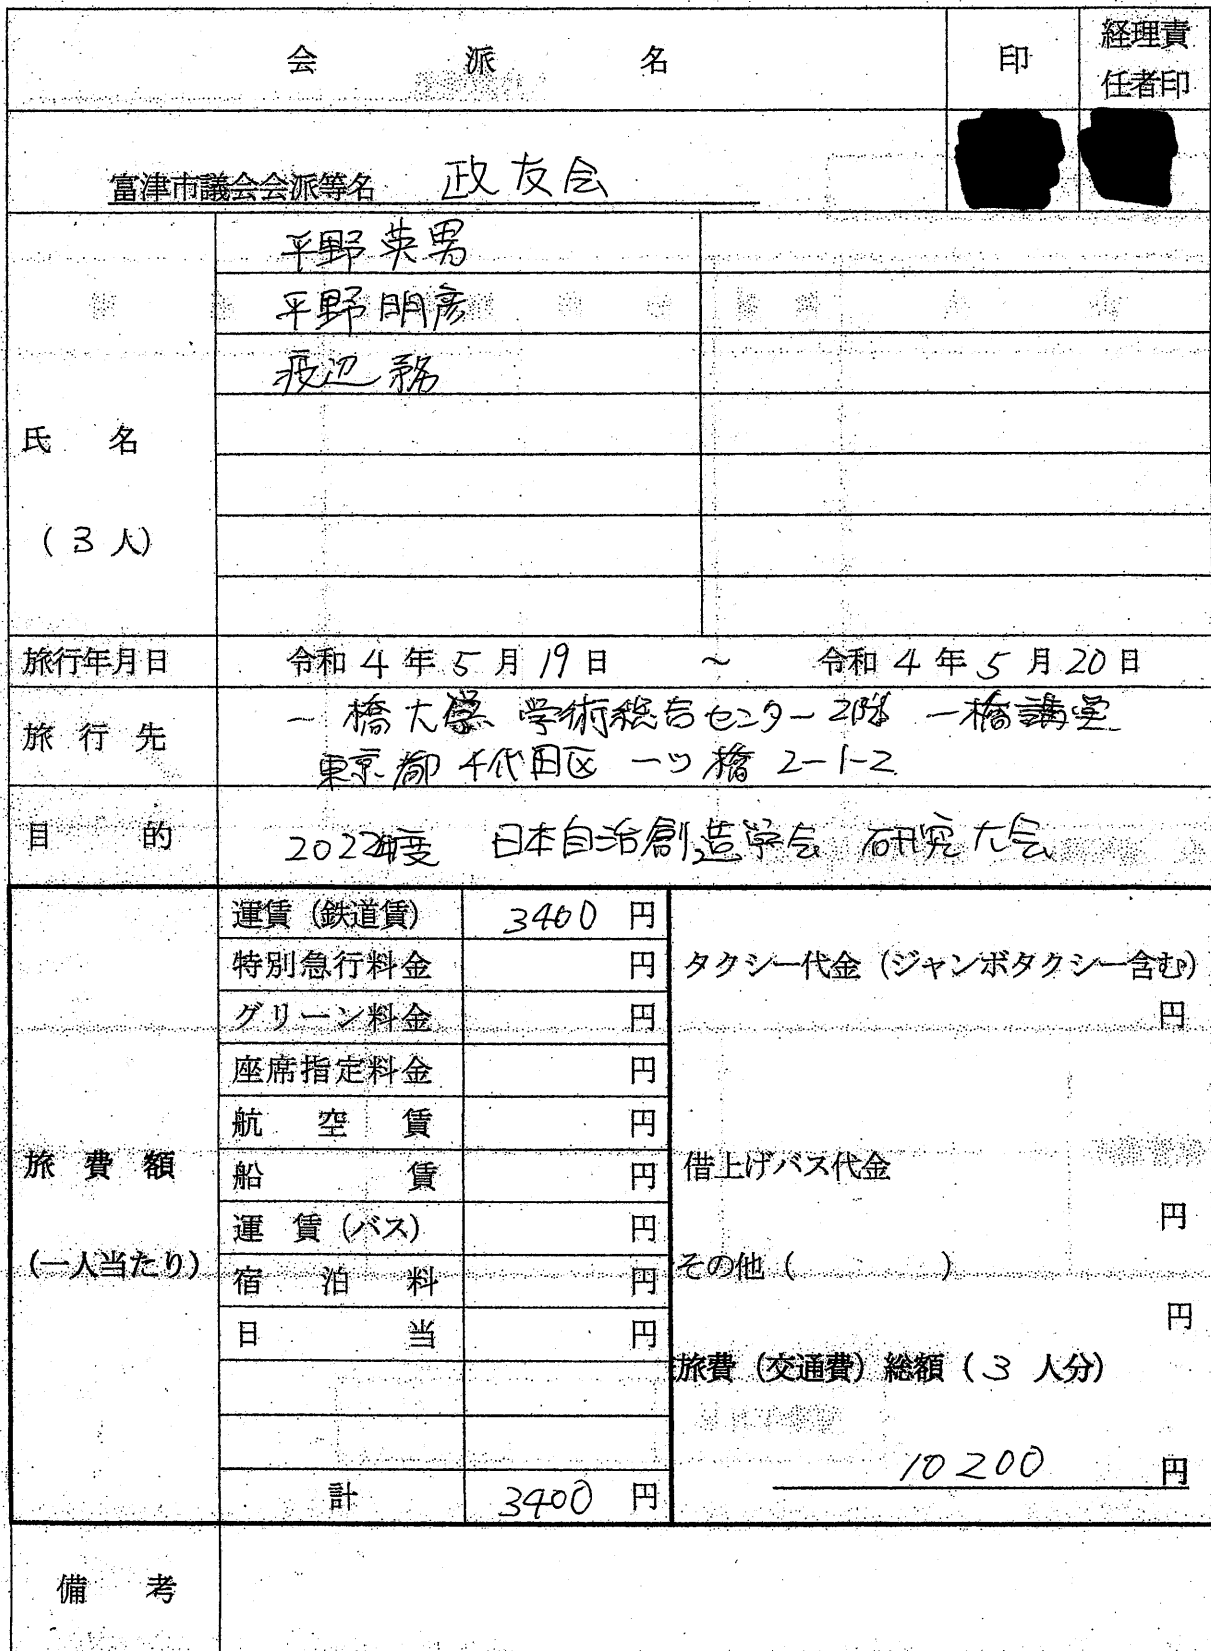 会 派 名
印
経理責
任者印
富津市議会会派等名 政友会
平野英男
平野明彦
渡辺務
氏 名
(3人)
旅行年月日 令和4年5月19日 ~ 令和4年5月20日
旅行先
一橋大学 学術総合センター2階 一橋講堂
東京都千代田区一ツ橋2-1-2
目 的 2022年度 日本自治創造学会 研究大会
旅費額
(一人当たり)
運賃(鉄道賃) 3400 円
特別急行料金 円
グリーン料金 円
座席指定料金 円
航空賃 円
船賃 円
運賃(バス) 円
宿泊料 円
日当 円
計 3400 円
タクシー代金(ジャンボタクシー含む)
円
借上げバス代金
円
その他( )
円
旅費(交通費)総額(3人分)
10200 円
備 考